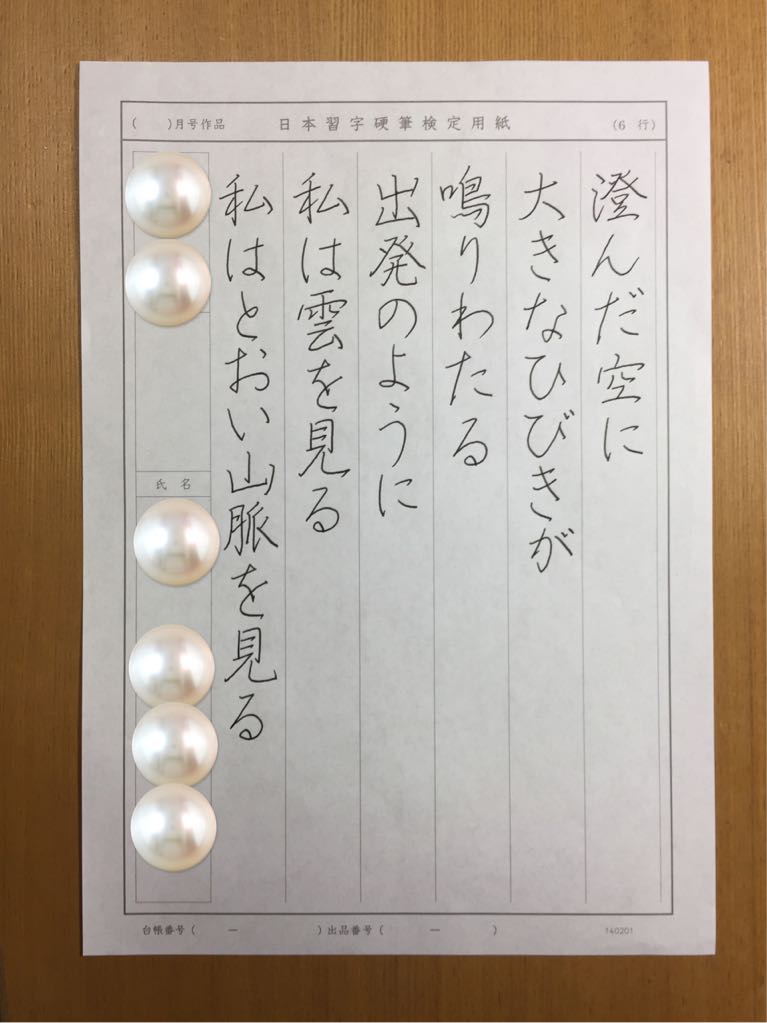 (　　)月号作品　日本習字硬筆検定用紙　(6 行)
澄んだ空に
大きなひびきが
鳴りわたる
出発のように
私は雲を見る
私はとおい山脈を見る
氏名
台帳番号(　　－　　　　)出品番号(　　－　　)　140201